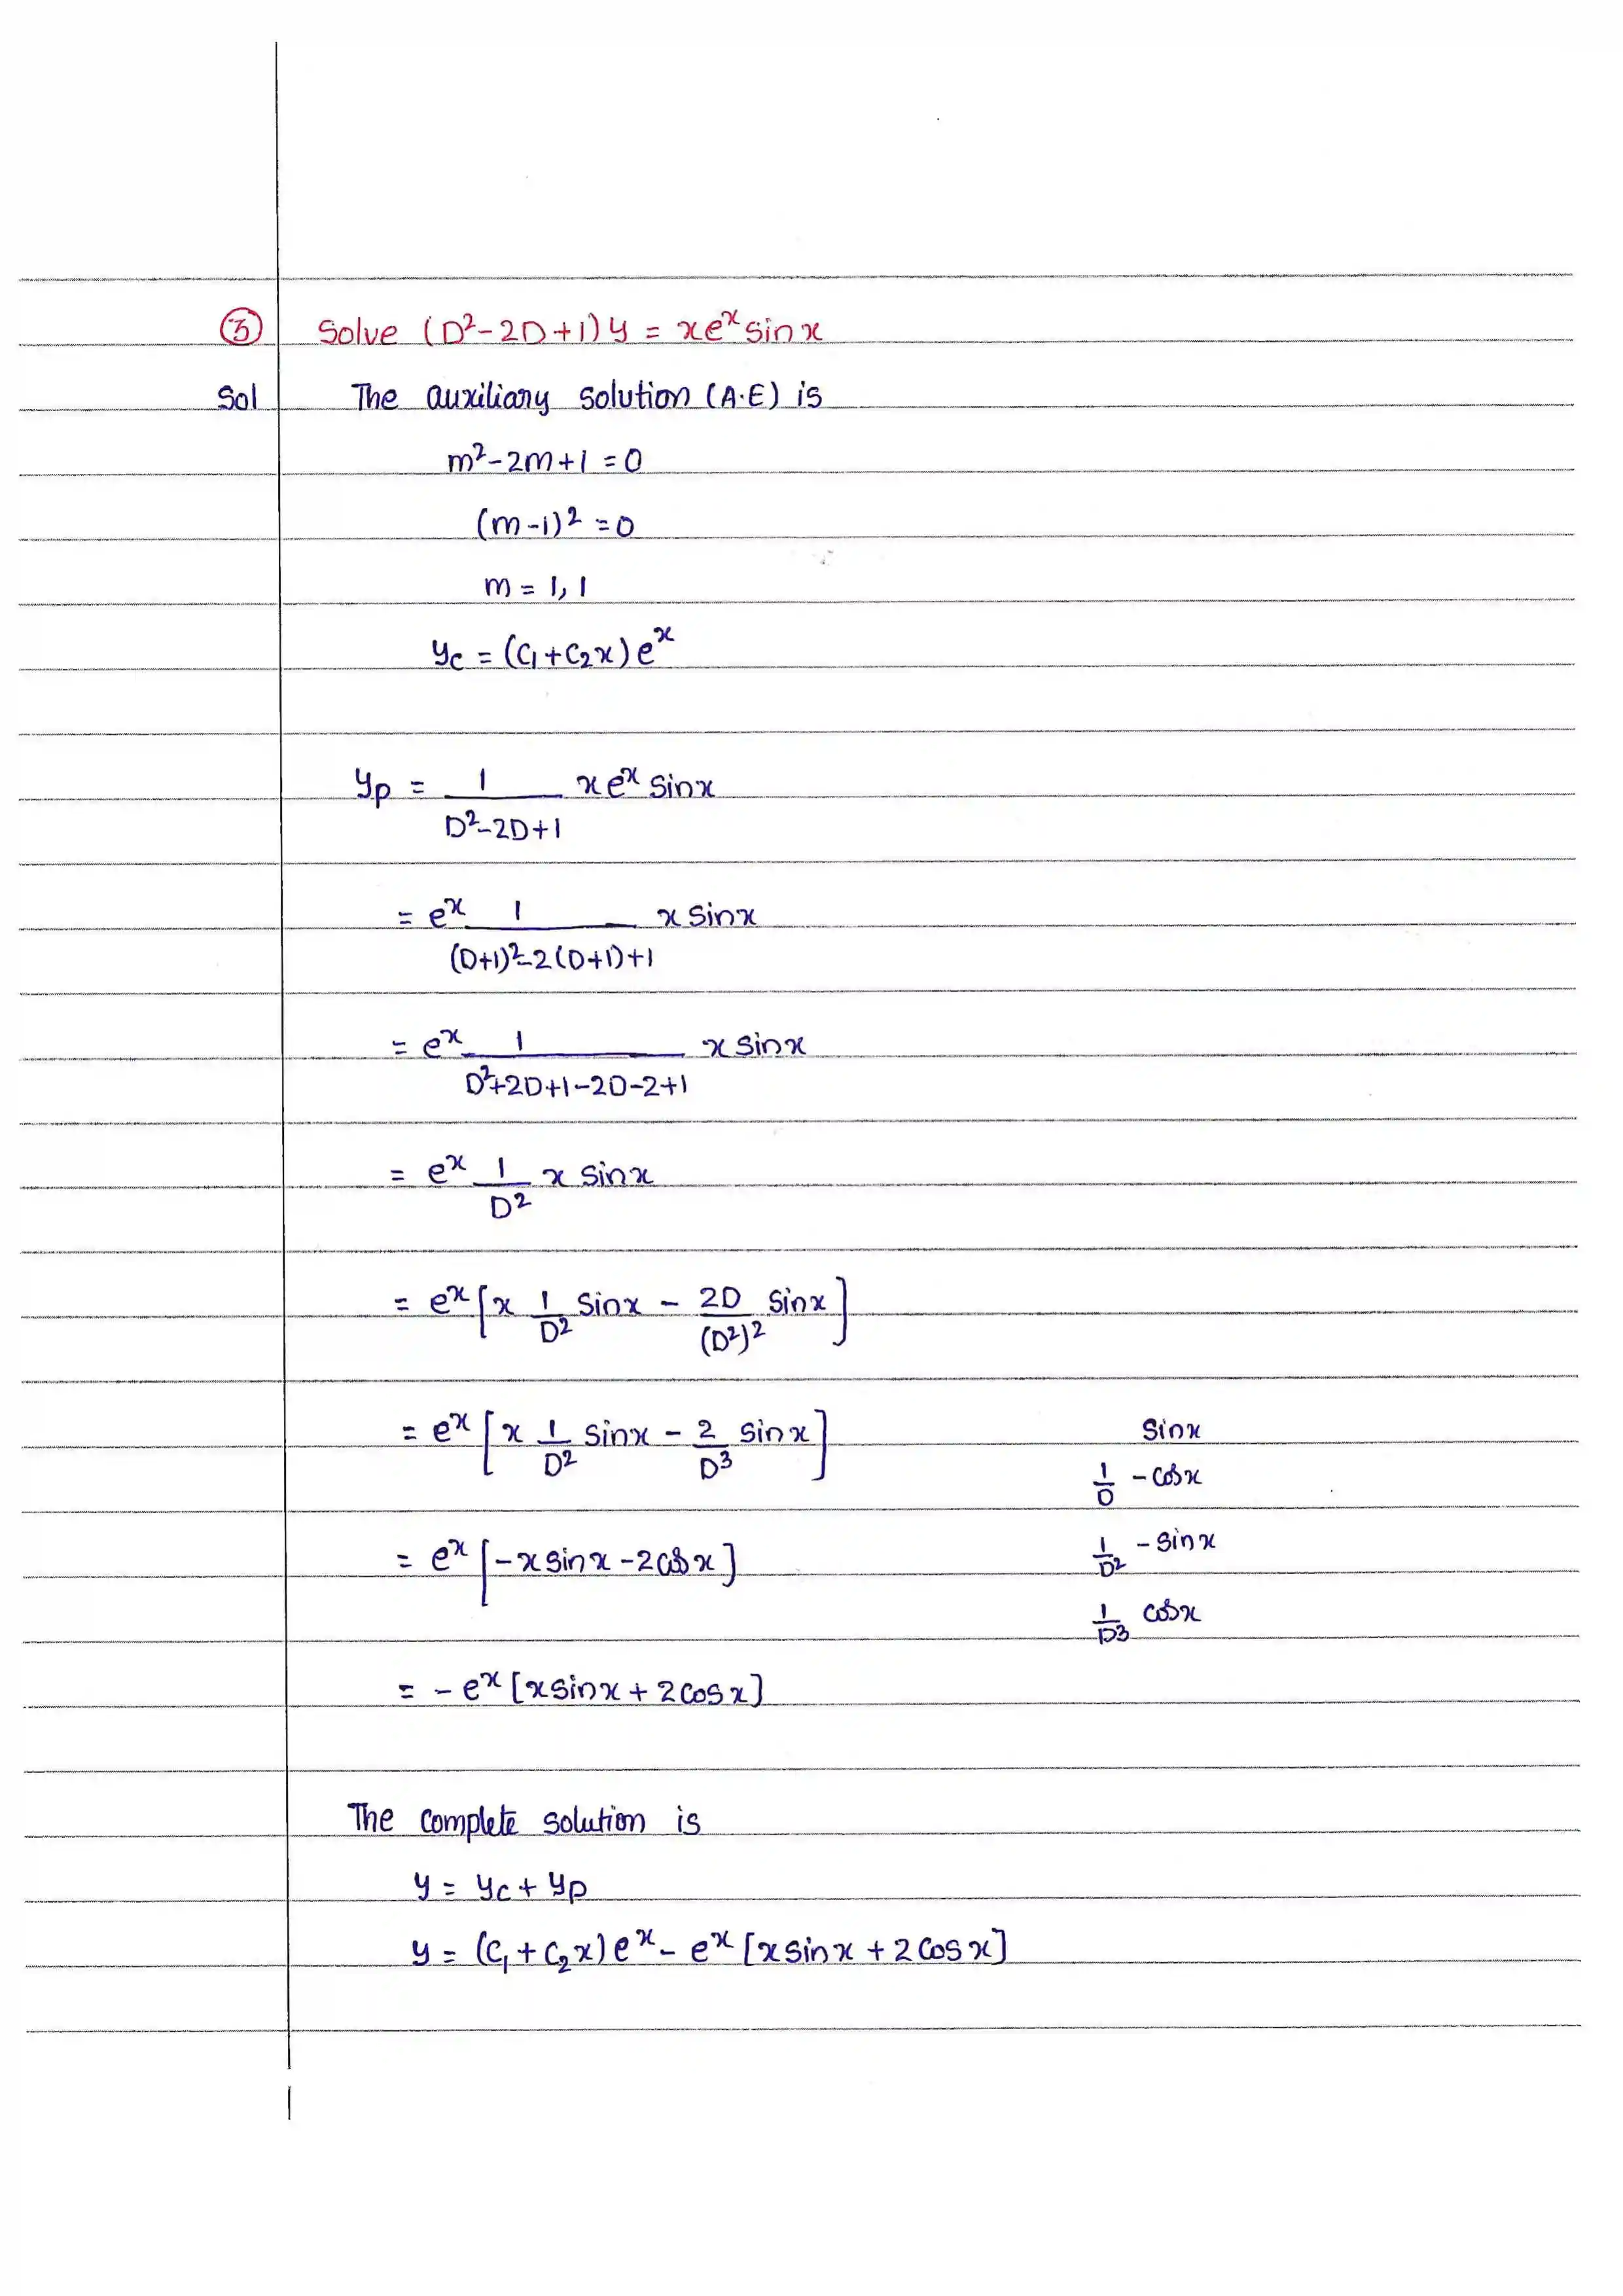 ③ Solve (D²-2D+1)y = xeˣsinx
Sol The auxiliary solution (A.E) is
m²-2m+1=0
(m-1)²=0
m=1,1
yc = (C₁+C₂x)eˣ
yp = 1/(D²-2D+1) xeˣ sinx
= eˣ 1/((D+1)²-2(D+1)+1) x sinx
= eˣ 1/(D²+2D+1-2D-2+1) x sinx
= eˣ 1/D² x sinx
= eˣ[x 1/D² sinx - 2D/(D²)² sinx]
= eˣ[x 1/D² sinx - 2/D³ sinx]
sinx
1/D -cosx
= eˣ[-xsinx-2cosx]
1/D² -sinx
1/D³ cosx
= -eˣ[xsinx+2cosx]
The complete solution is
y = yc+yp
y = (C₁+C₂x)eˣ-eˣ[xsinx+2cosx]